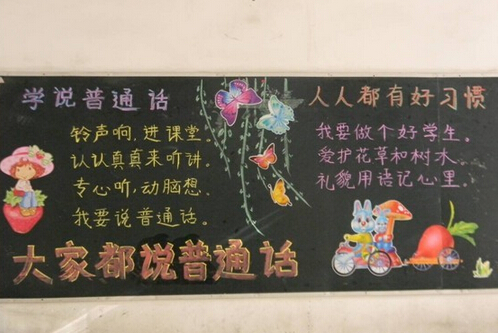 学说普通话
铃声响,进课堂。
认认真真来听讲.
专心听,动脑想.
我要说普通话。
大家都说普通话
人人都有好习惯
我要做个好学生。
爱护花草和树木.
礼貌用语记心里。